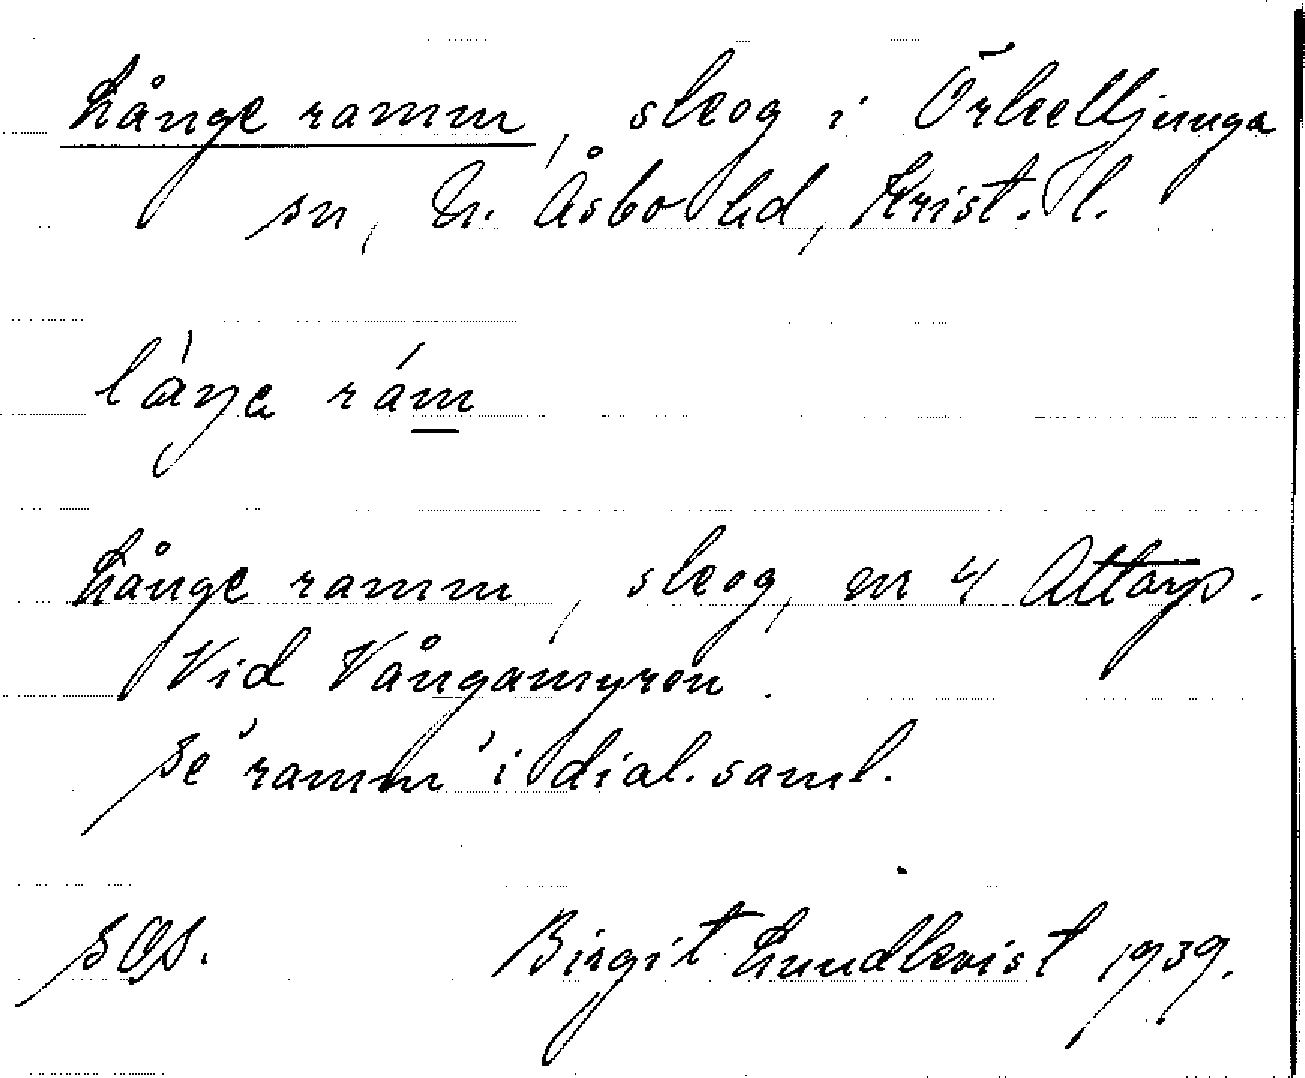 Långe ramm, skog i Örkelljunga
sn, N. Åsbo hd, Krist. l.
Långe ramm, skog, en 4
Vid Vångamyren.
Se 'ramm' i dial. saml.
SOS. Birgit Lundkvist 1939.